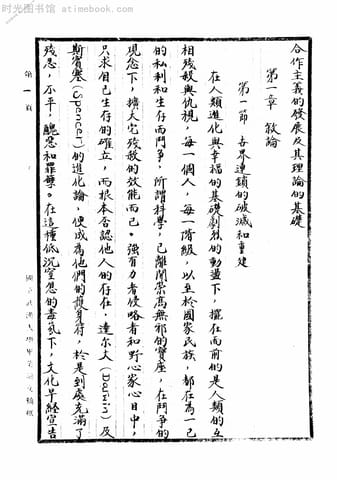 时光图书馆 - atimebook.com
合作主義的發展及其理論的基礎
第一章 敘論
第一節 世界連鎖的破滅和重建
在人類進化與幸福的基礎劇烈的動盪下，擺在面前的是人類的互
相殘殺與仇視，每一個人，每一階級，以至於國家民族，都在為一己
的私利和生存而鬥爭，所謂科學，已離開崇高無邪的寶座，在鬥爭的
現念下，擴大它殘殺的效能而已。強有力者侵略者和野心家心目中，
只求自己生存的確立，而根本否認他人的存在，達尔文(Darwin)及
斯賓塞(Spencer)的進化論，便成為他們的護身符，於是到處充滿了
殘忍，不平，醜惡和罪孽。在這種低沉窒息的毒氛下，文化早經宣告
第一頁
國立武漢大學畢業論文稿紙